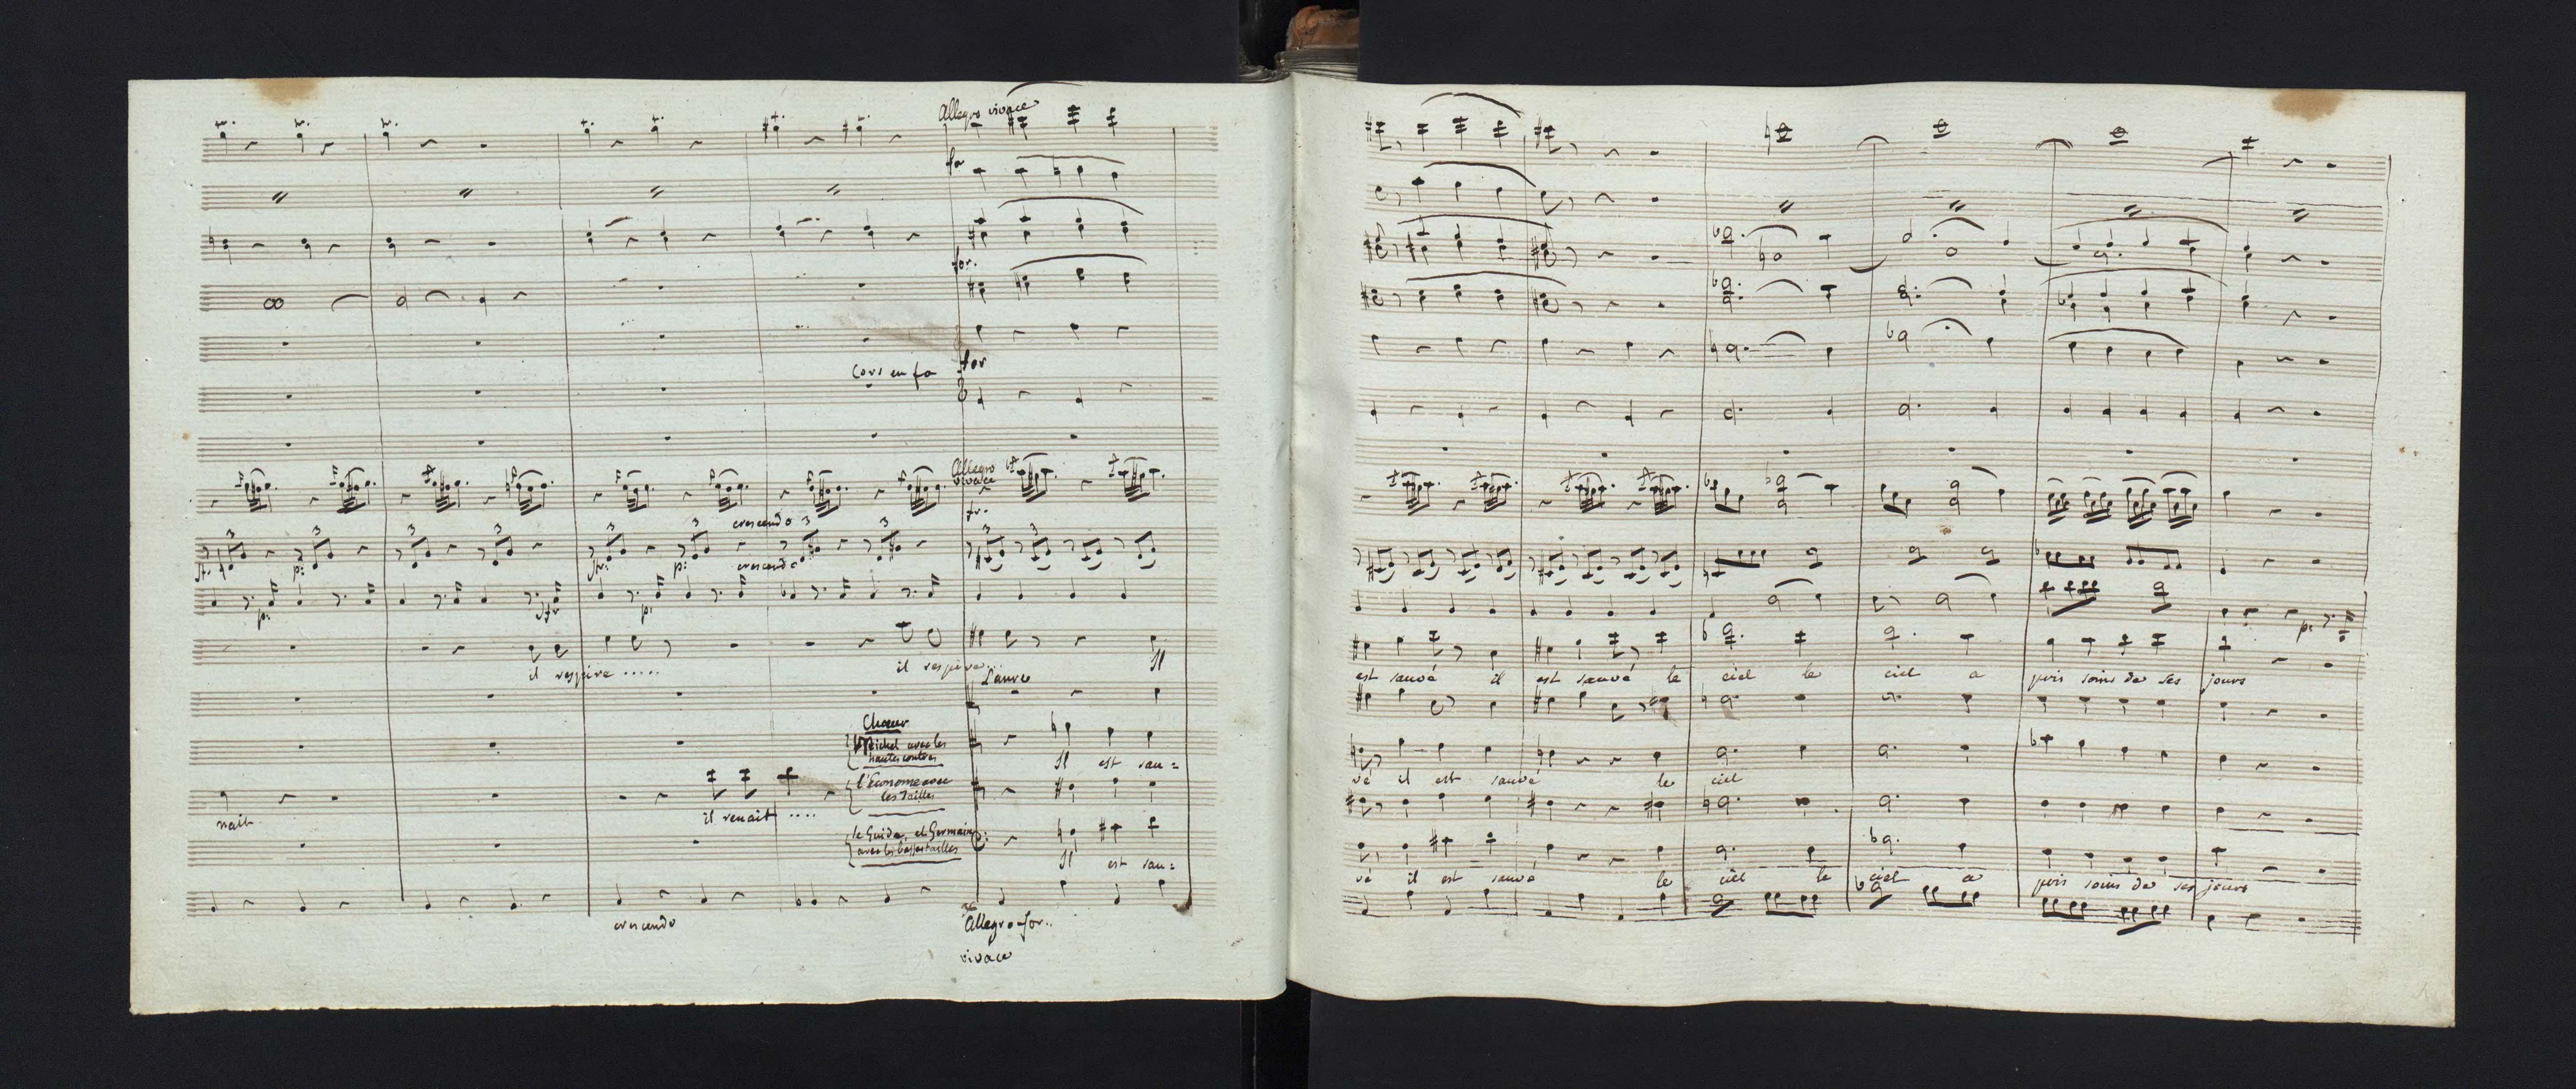 Allegro vivace
for
for.
Cors en fa
for
Allegro
vivace
fr.
crescendo 3
3 3 3 3 3 3 3 3 3
p: p: crescendo
p: p:
il respire ..... il respire... Il
Laure
Chœur
Michel avec les
hautes contres
Il est sau =
l'Econome avec
les Tailles
nait il renait ....
le Guide, et Germain
avec les basses tailles
Il est sau =
crescendo
Allegro for..
vivace
p:
est sauvé il est sauvé le ciel le ciel a pris soins de ses jours
vé il est sauvé le ciel
vé il est sauvé le ciel le ciel a pris soins de ses jours